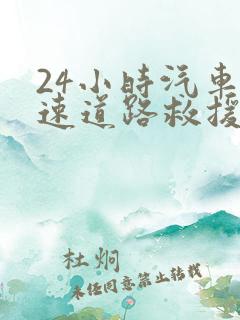 24小時汽車
速道路救援
杜炯
未任同意禁止转载